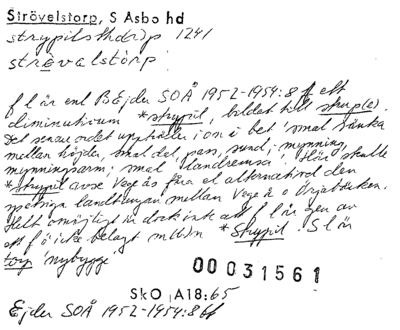 Strövelstorp, S Asbo hd
strypilsthorp 1241
strövalstorp
f l är enl B Ejder SOÅ 1952-1954:8 ff ett
diminutivum *strypil, bildat till strup(e).
Det senare ordet uppträder i on i bet 'smal sänka
mellan höjder, smal dal, pass, sund, mynning,
mynningsarm; smal landremsa'. Här skulle
*strypil avse Vege ås fåra el alternativt den
spetsiga landtungan mellan Vege å o Örjabäcken.
Helt omöjligt är dock inte att f l är gen av
ett f ö icke belagt mbn *Strypil. S l är
torp 'nybygge
00031561
SkO A18:65
Ejder SOÅ 1952-1954:8 ff